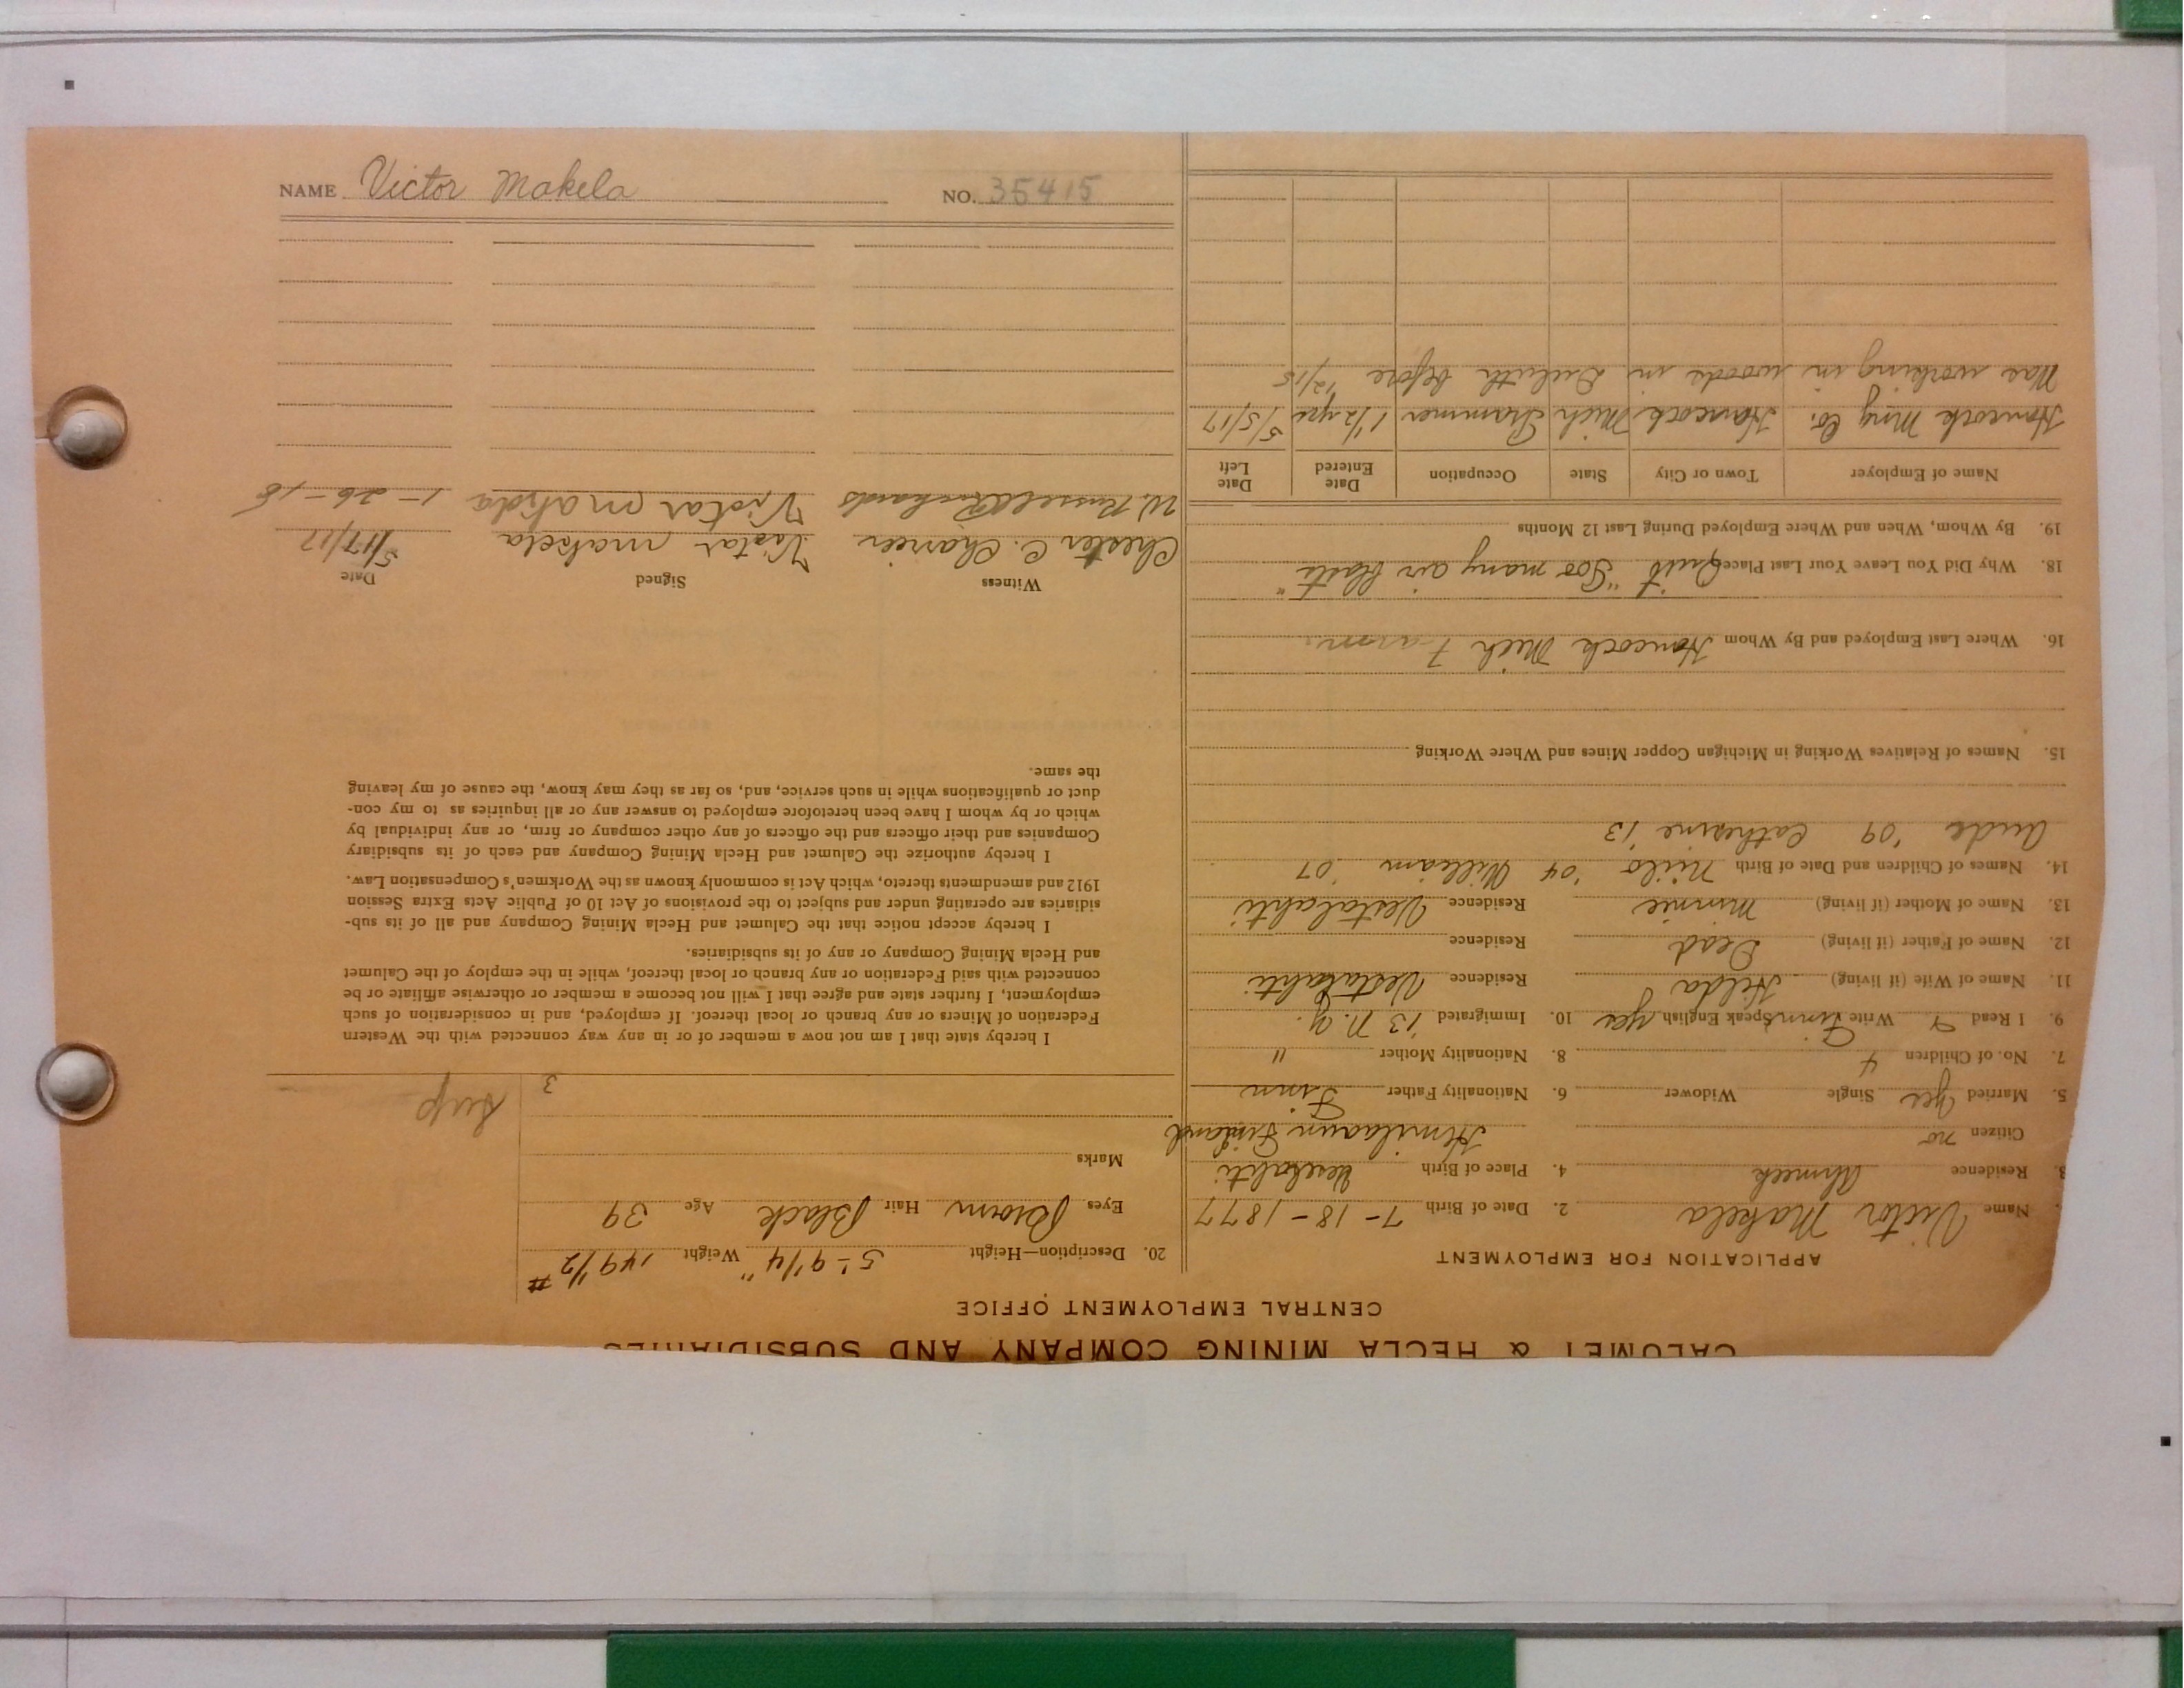 NAME Victor Makela NO. 35415
CALUMET & HECLA MINING COMPANY AND SUBSIDIARIES
CENTRAL EMPLOYMENT OFFICE
APPLICATION FOR EMPLOYMENT
Name Victor Makela 2. Date of Birth 7-18-1877
3. Residence Ahmeek 4. Place of Birth
Citizen no Finland
5. Married yes Single Widower 6. Nationality Father Finn
7. No. of Children 4 8. Nationality Mother "
9. I Read Y Write Finn Speak English yes 10. Immigrated '13 N.Y.
11. Name of Wife (if living) Hilda Residence Vestalahti
12. Name of Father (if living) Dead Residence
13. Name of Mother (if living) Minnie Residence Vestalahti
14. Names of Children and Date of Birth Niilo '04 William '07
'09 Catherine '13
15. Names of Relatives Working in Michigan Copper Mines and Where Working
16. Where Last Employed and By Whom Hancock Mich
18. Why Did You Leave Your Last Place Quit "Too many air blasts"
19. By Whom, When and Where Employed During Last 12 Months
Name of Employer Town or City State Occupation Date Entered Date Left
Hancock Ming Co. Hancock Mich Trammer 1 1/2 yrs 5/5/17
Was working in woods in Duluth before 12/15
20. Description—Height 5'-9 1/4" Weight 149 1/2 #
Eyes Brown Hair Black Age 39
Marks
3
I hereby state that I am not now a member of or in any way connected with the Western
Federation of Miners or any branch or local thereof. If employed, and in consideration of such
employment, I further state and agree that I will not become a member or otherwise affiliate or be
connected with said Federation or any branch or local thereof, while in the employ of the Calumet
and Hecla Mining Company or any of its subsidiaries.
I hereby accept notice that the Calumet and Hecla Mining Company and all of its sub-
sidiaries are operating under and subject to the provisions of Act 10 of Public Acts Extra Session
1912 and amendments thereto, which Act is commonly known as the Workmen's Compensation Law.
I hereby authorize the Calumet and Hecla Mining Company and each of its subsidiary
Companies and their officers and the officers of any other company or firm, or any individual by
which or by whom I have been heretofore employed to answer any or all inquiries as to my con-
duct or qualifications while in such service, and, so far as they may know, the cause of my leaving
the same.
Witness Signed Date
Chester C. Victar makela 5/17/17
W. Russell Richards Victar 1-26-18